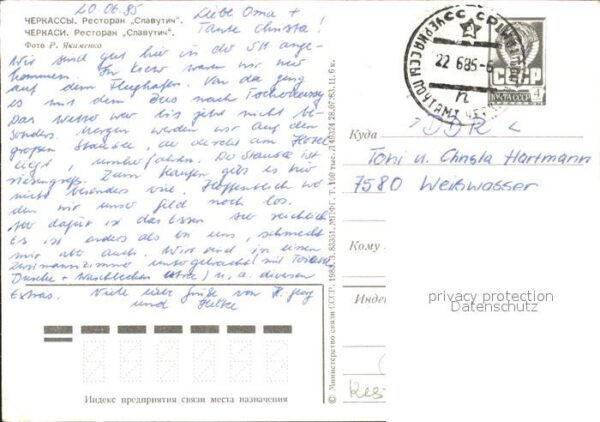 20.06.85
Liebe Oma +
Tante Christa!
ЧЕРКАССЫ. Ресторан „Славутич“.
ЧЕРКАСИ. Ресторан „Славутич“.
Фото Р. Якименко
Wir sind gut hier in der SU ange-
kommen. In Kiew waren wir nur
auf dem Flughafen. Von da ging
es mit dem Bus nach Tscherkassy
Das Wetter war bis jetzt nicht be-
sonders. Morgen werden wir auf den
großen Stausee, der direkt am Hotel
liegt, umherfahren. Der Stausee ist
riesengroß. Zum Kaufen gibt es hier
nicht besonders viel. Hoffentlich wer
den wir unser Geld noch los.
Aber dafür ist das Essen sehr reichlich
Es ist anders als bei uns, schmeckt
mir aber auch. Wir sind in einem
Zweimannzimmer untergebracht (mit Toilette
Dusche + Waschbecken) u. a. diversen
Extras. Viele liebe Grüße von
und Heike
Индекс предприятия связи места назначения
© Министерство связи СССР, 1983. З. 83351. МПФГ. Т. 100 тыс. 28.07.83. 11. 6 к.
ЧЕРКАССЫ ПОЧТАМТ
СССР
22 685-6
СССР
ПОЧТА СССР
4
Куда
DDR
Toni u. Christa Hartmann
7580 Weißwasser
Кому
Индекс
privacy protection
Datenschutz